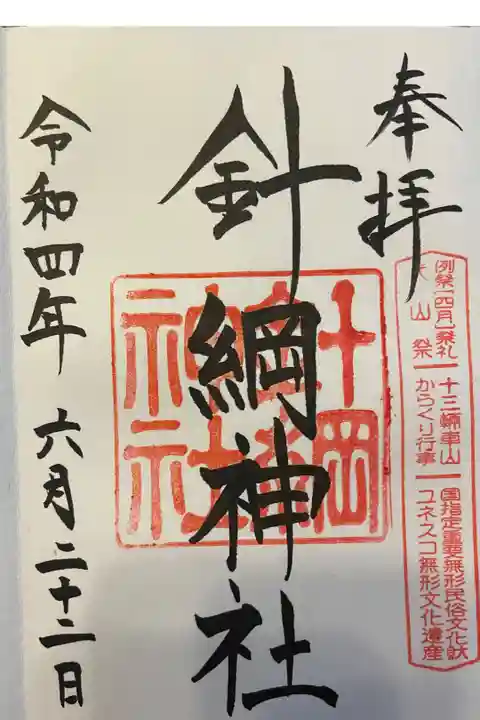 奉拝
例祭(四月)祭礼 十三輌車山 国指定重要無形民俗文化財
犬山祭 からくり行事 ユネスコ無形文化遺産
針綱神社
針綱神社
令和四年 六月二十二日